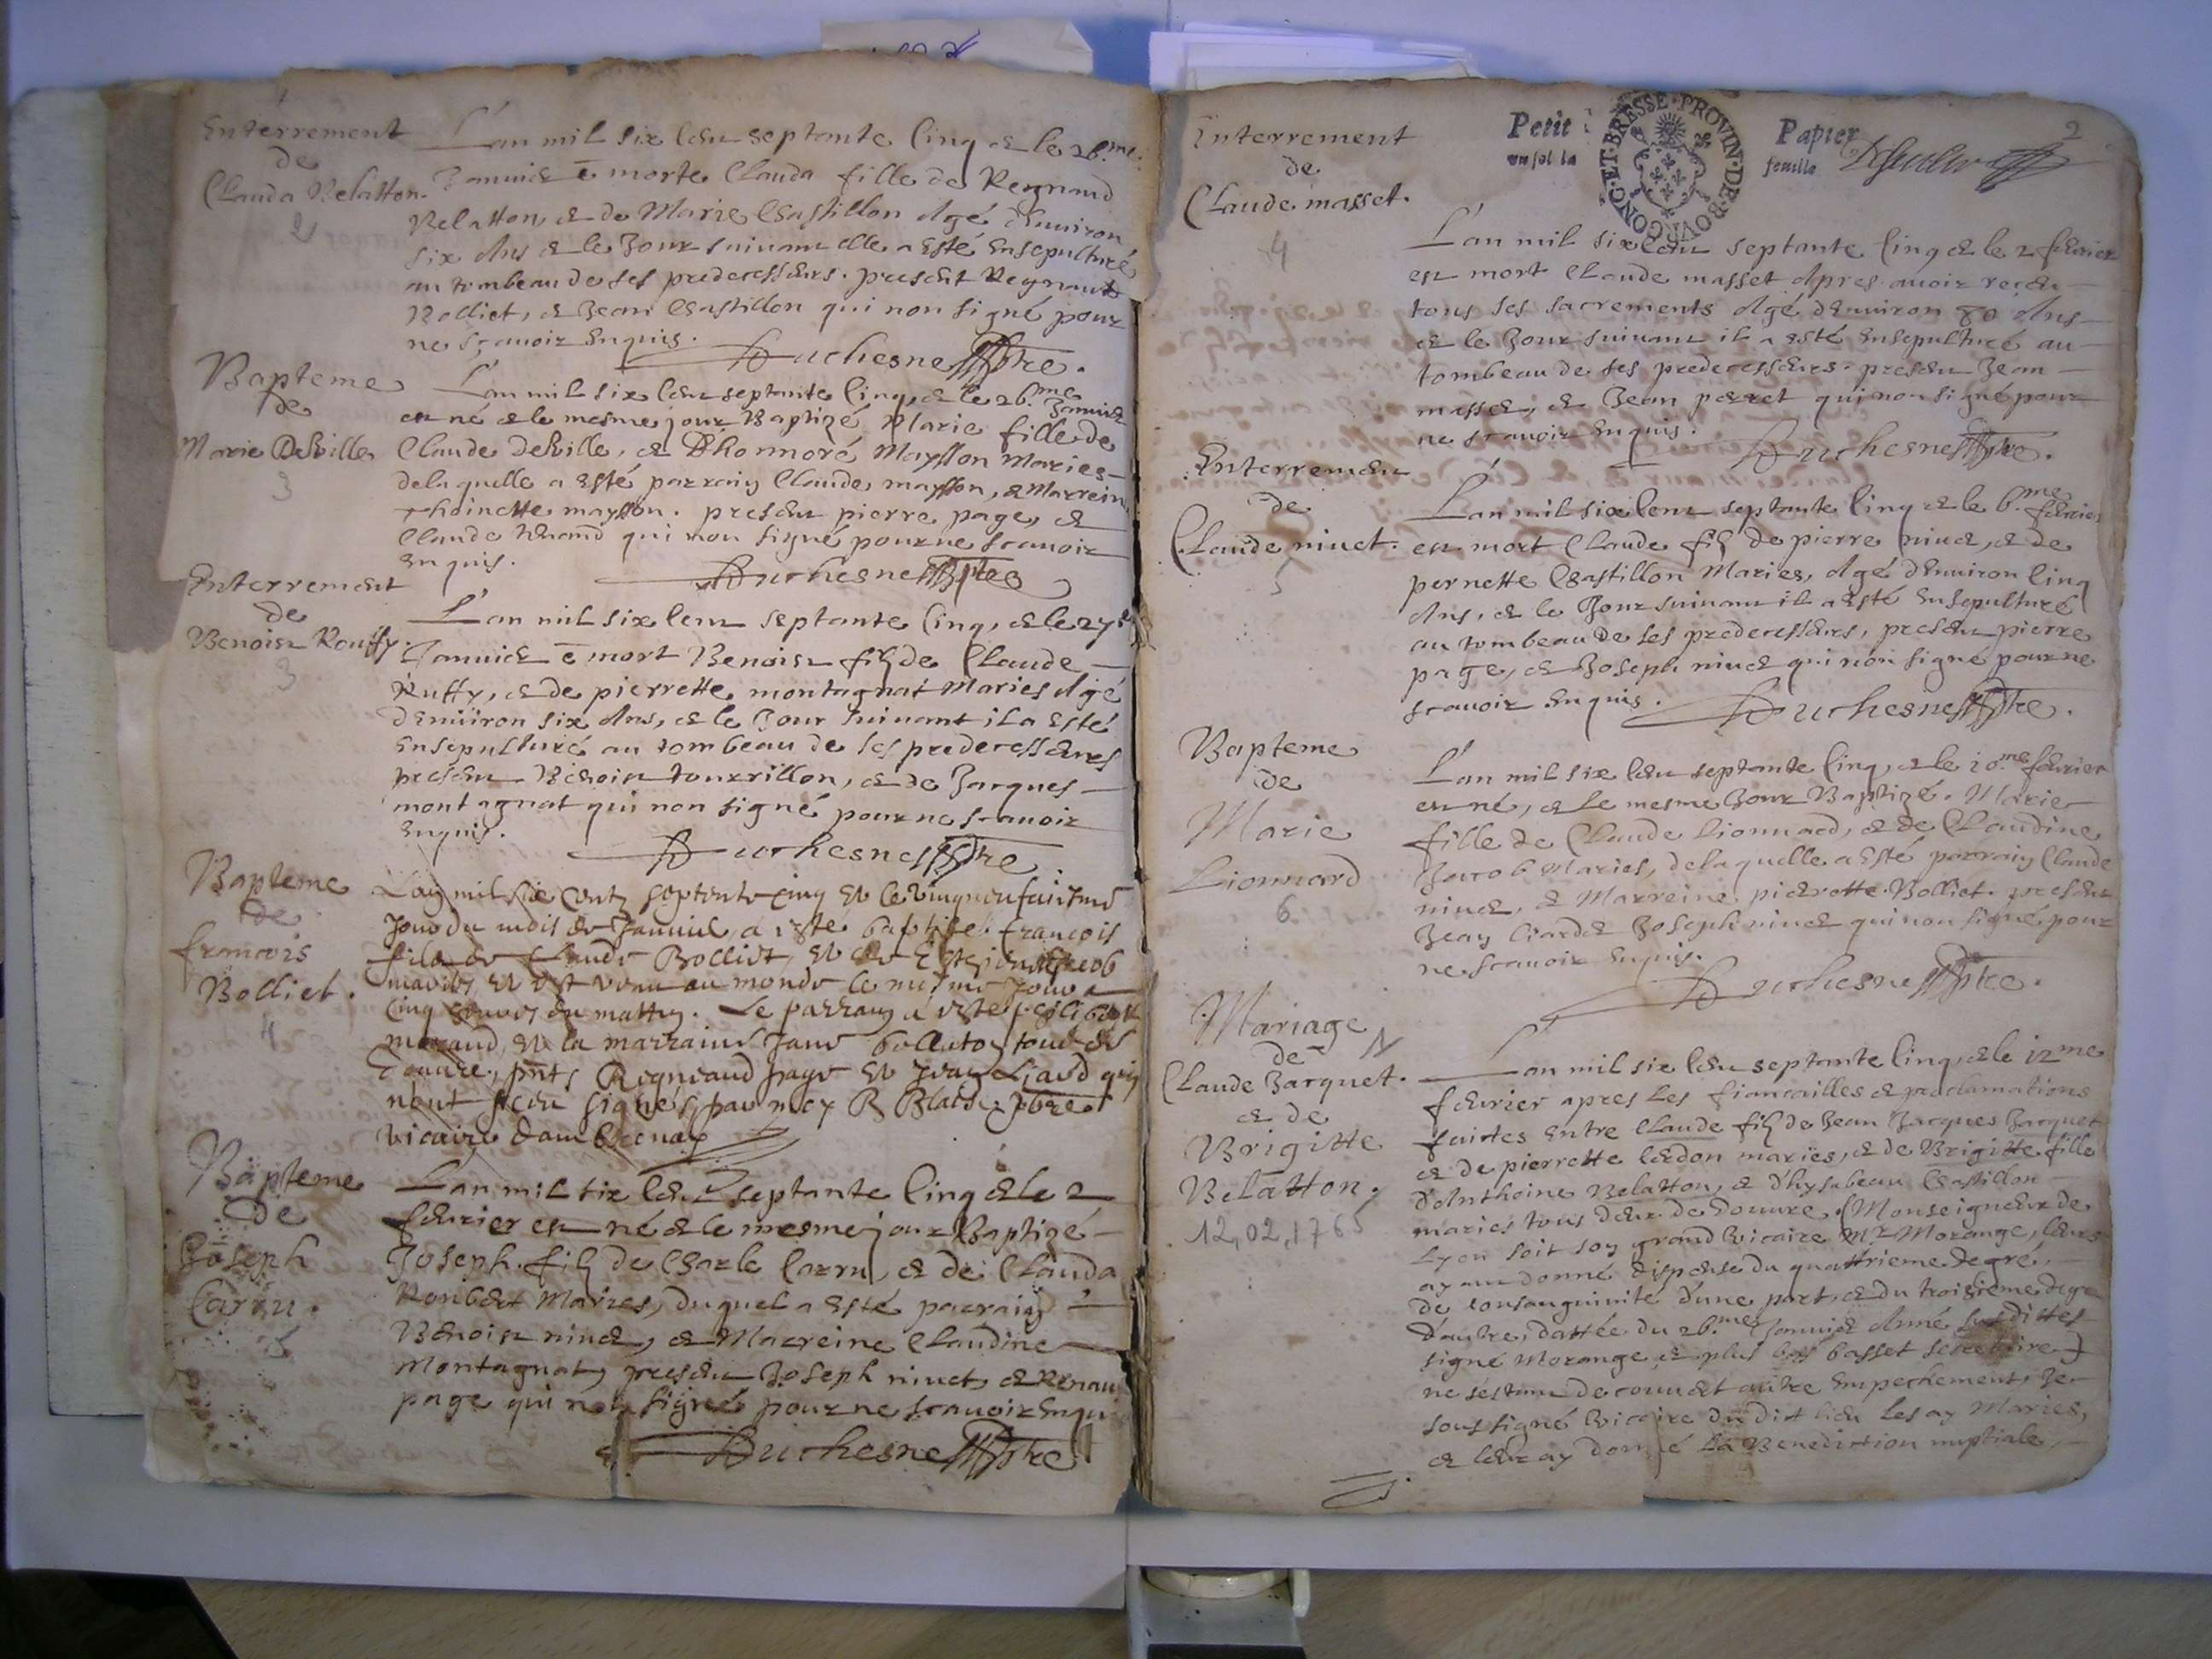 Enterrement
de
Clauda Velatton.
2
L'an mil six cens septante cinq & le 26.me
Januier ē morte Clauda fille de Regnaud
Velatton, & de Marie Chastillon Agé d'Enuiron
six Ans & le Jour suiuant elle a Esté Ensepulturé
au tombeau de ses predecesseurs. present Regnaut
Bolliet, & Jean Chastillon qui non signé pour
ne sçauoir Enquis. Duchesne Ptre.
Bapteme
de
Marie Deville
3
L'an mil six cens septante cinq, & le 26.me Januier
est né & le mesme jour Baptizé Marie fille de
Claude deville, & Dhonnoré Maysson Maries
delaquelle a Esté parrain Claude maysson, & Marreine
thoinette maysson. present pierre page, &
Claude qui non signé pour ne scauoir
enquis. Duchesne Ptre
Enterrement
de
Benoist Rouffy.
3
L'an mil six cens septante cinq, & le 27
Januier ē mort Benoist filz de Claude
Ruffy, & de pierrette montagnat Maries Agé
d'Enuiron six Ans, & le Jour suiuant il a Esté
Ensepulturé au tombeau de ses predecesseurs
present Benoist tourrillon, & de Jacques
montagnat qui non signé pour ne scauoir
enquis. Duchesne Ptre
Bapteme
de
francois
Bolliet.
4
L'an mil six Centz septente cinq et le vingneufuiesme
Jour du mois de Januier, a esté baptisé francois
filz de Claude Bolliet, et de Jacob
mariés et est venu au monde le mesme Jour a
cinq heures du mattin. Le parrain a esté philibert
moraud et la marraine Jane tous de
Douure, pnts Regneaud page et Jean Liard qui
n'ont sceu signer, par moy B Blas ptre
vicaire d'ambronay
Bapteme
de
Joseph
Carru.
5
L'an mil six cens septante cinq & le 2
feurier est né & le mesme jour Baptizé
Joseph filz de Charle Carru, & de Clauda
Roubert Maries, duquel a Esté parrain
Benoist niuet, & Marreine Claudine
Montagnat, present Joseph niuet, & Renau
page qui non signé pour ne scauoir Enqui
Duchesne Ptre
2
Petit Papier
un sol la feuille
BOVRGONG·ET·BRESSE·PROVIN·DE
Enterrement
de
Claude masset.
4
L'an mil six cens septante cinq & le 2 feurier
est mort Claude masset Apres auoir receu
tous ses sacrements Agé d'Enuiron 80 Ans
& le Jour suiuant il a esté Ensepulturé au
tombeau de ses predecesseurs. present Jean
masset, & Jean perret qui non signé pour
ne scauoir Enquis. Duchesne Ptre.
Enterrement
de
Claude niuet.
5
L'an mil six cens septante cinq & le 6.me feurier
est mort Claude filz de pierre niuet, & de
pernette Chastillon Maries, Agé d'Enuiron cinq
Ans, & le Jour suiuant il a Esté Ensepulturé
au tombeau de ses predecesseurs, present pierre
page, & Joseph niuet qui non signé pour ne
scauoir Enquis. Duchesne Ptre.
Bapteme
de
Marie
Lionnard
6
L'an mil six cens septante cinq, & le 10.me feurier
est né, & le mesme Jour Baptizé. Marie
fille de Claude Lionnard, & de Claudine
Jacob Maries, delaquelle a Esté parrain Claude
niuet, & Marreine pierrette Bolliet. present
Jean Liard & Joseph niuet qui non signé pour
ne scauoir Enquis.
Duchesne Ptre.
Mariage
de
Claude Jacquet.
& de
Brigitte
Velatton.
12,02,1765
L'an mil six cens septante cinq, & le 12me
feurier apres les fiancailles & proclamations
faictes Entre Claude filz de Jean Jacques Jacquet
& de pierrette cerdon maries, & de Brigitte fille
d'Anthoine Velatton, & d'hysabeau Chastillon
maries tous deux de Douure. (Monseigneur de
Lyon soit son grand Vicaire Mr. Morange, leurs
ayant donné dispense du quattrieme degré,
de consanguinité d'une part, & du troisieme degré
d'autre, dattée du 26.me Januier Anné susdittes
signé Morange & plus bas basset secretaire)
ne s'estant decouuert autre Empechement, Je
soussigné Vicaire du dit lieu les ay Maries,
& leur ay donné la Benediction nuptiale,